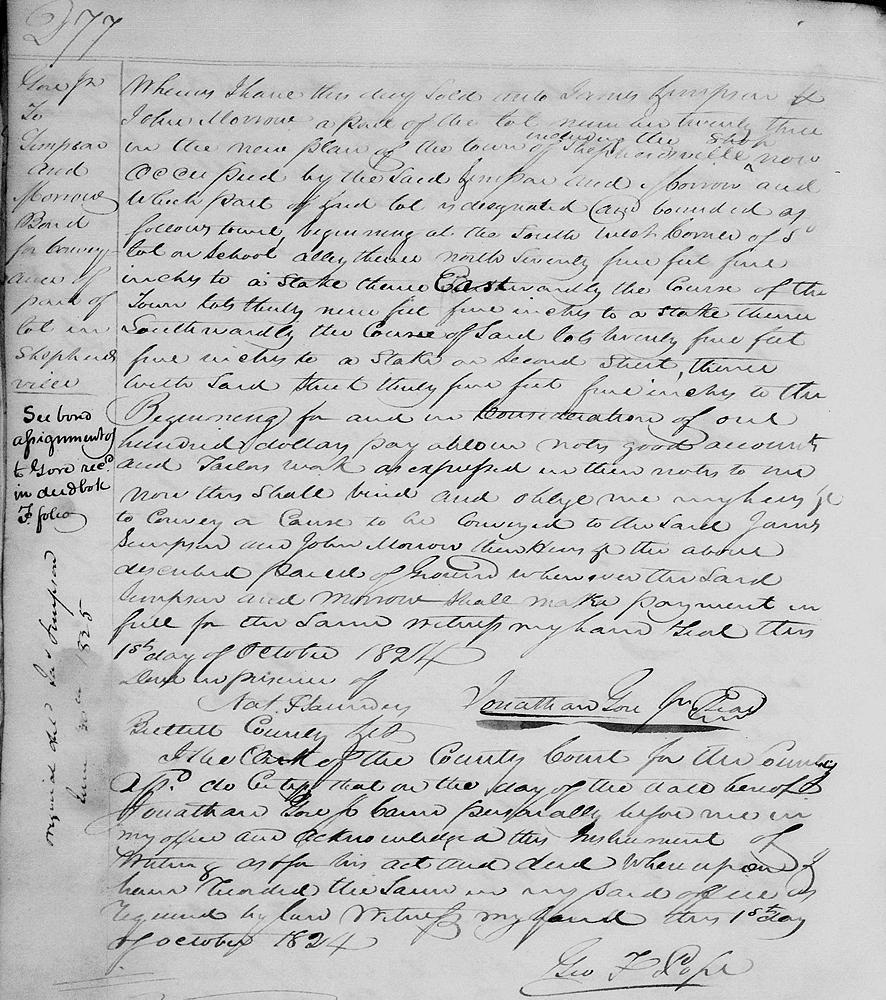 277
Gore Jr
To
Simpson
and
Morrow
Bond
for Convey-
ance of
part of
lot in
Shepherds
ville
See bond
assignment of
to Gore recd
in deed book
F folio
original deld Jas Simpson
June 1825
Whereas I have this day Sold unto James Simpson &
John Morrow a part of the lot number twenty three
in the new plan of the town of Shepherdsville now
including the Shop
occupied by the Said Simpson and Morrow and
Which part of said lot is designated and bounded as
follows towit beginning at the South West Corner of sd
lot on School alley thence north Seventy five feet five
inches to a Stake thence Eastwardly the Course of the
Town lots thirty nine feet five inches to a Stake thence
Southwardly the Course of Said lots twenty five feet
five inches to a Stake on Second Street, thence
with Said Street thirty five feet five inches to the
Beginning for and in Consideration of one
hundred dollars pay able in notes good accounts
and Tailors work as expressed in their notes to me
now this Shall bind and oblige me my heirs &c
to Convey or Cause to be Conveyed to the Said James
Simpson and John Morrow their Heirs &c the above
described parcel of Ground whenever the Said
Simpson and Morrow Shall make payment in
full for the Same Witness my hand & Seal this
1st day of October 1824
Done in presence of
Nat. Saunders Jonathan Gore Jr Seal
Bullitt County Sct
I the Clerk of the County Court for the County
afsd do Certify that on the day of the date hereof
Jonathan Gore Jr Came personally before me in
my office and acknowledged this Instrument of
Writing as & for his act and deed Whereupon I
have Recorded the Same in my said office as
required by law Witness my hand this 1st day
of October 1824
Geo F Pope